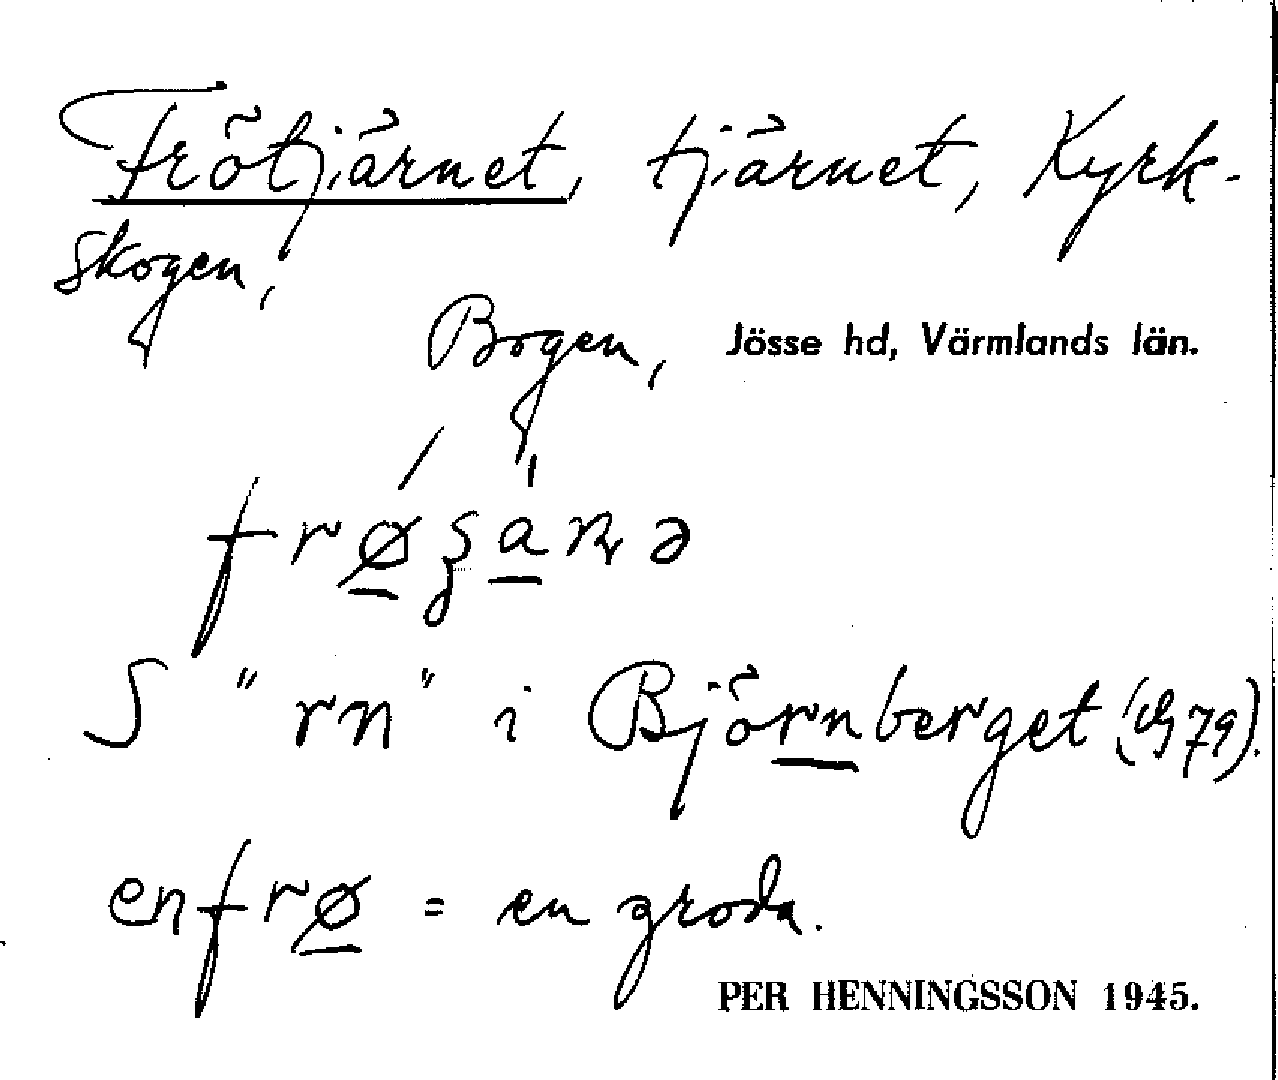 Frötjärnet, tjärnet, Kyrk-
skogen,
Bogen, Jösse hd, Värmlands län.
S "rn" i Björnberget
en frø = en groda.
PER HENNINGSSON 1945.